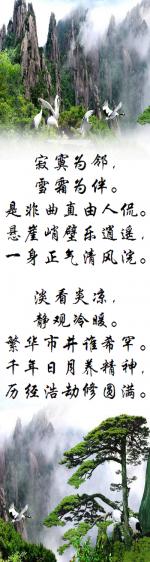 寂寞为邻,
雪霜为伴。
是非曲直由人侃。
悬崖峭壁乐逍遥,
一身正气清风浣。
淡看炎凉,
静观冷暖。
繁华市井谁希罕。
千年日月养精神,
历经浩劫修圆满。